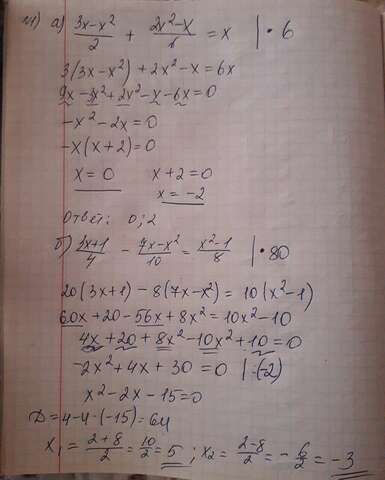 14) а) (3x-x²)/2 + (2x²-x)/6 = x | • 6
3(3x-x²)+2x²-x=6x
9x-3x²+2x²-x-6x=0
-x²-2x=0
-x(x+2)=0
x=0 x+2=0
x=-2
Ответ: 0; 2
б) (3x+1)/4 - (7x-x²)/10 = (x²-1)/8 | • 80
20(3x+1)-8(7x-x²)=10(x²-1)
60x+20-56x+8x²=10x²-10
4x+20+8x²-10x²+10=0
-2x²+4x+30=0 | :(-2)
x²-2x-15=0
D=4-4·(-15)=64
x₁=(2+8)/2=10/2=5; x₂=(2-8)/2=-6/2=-3